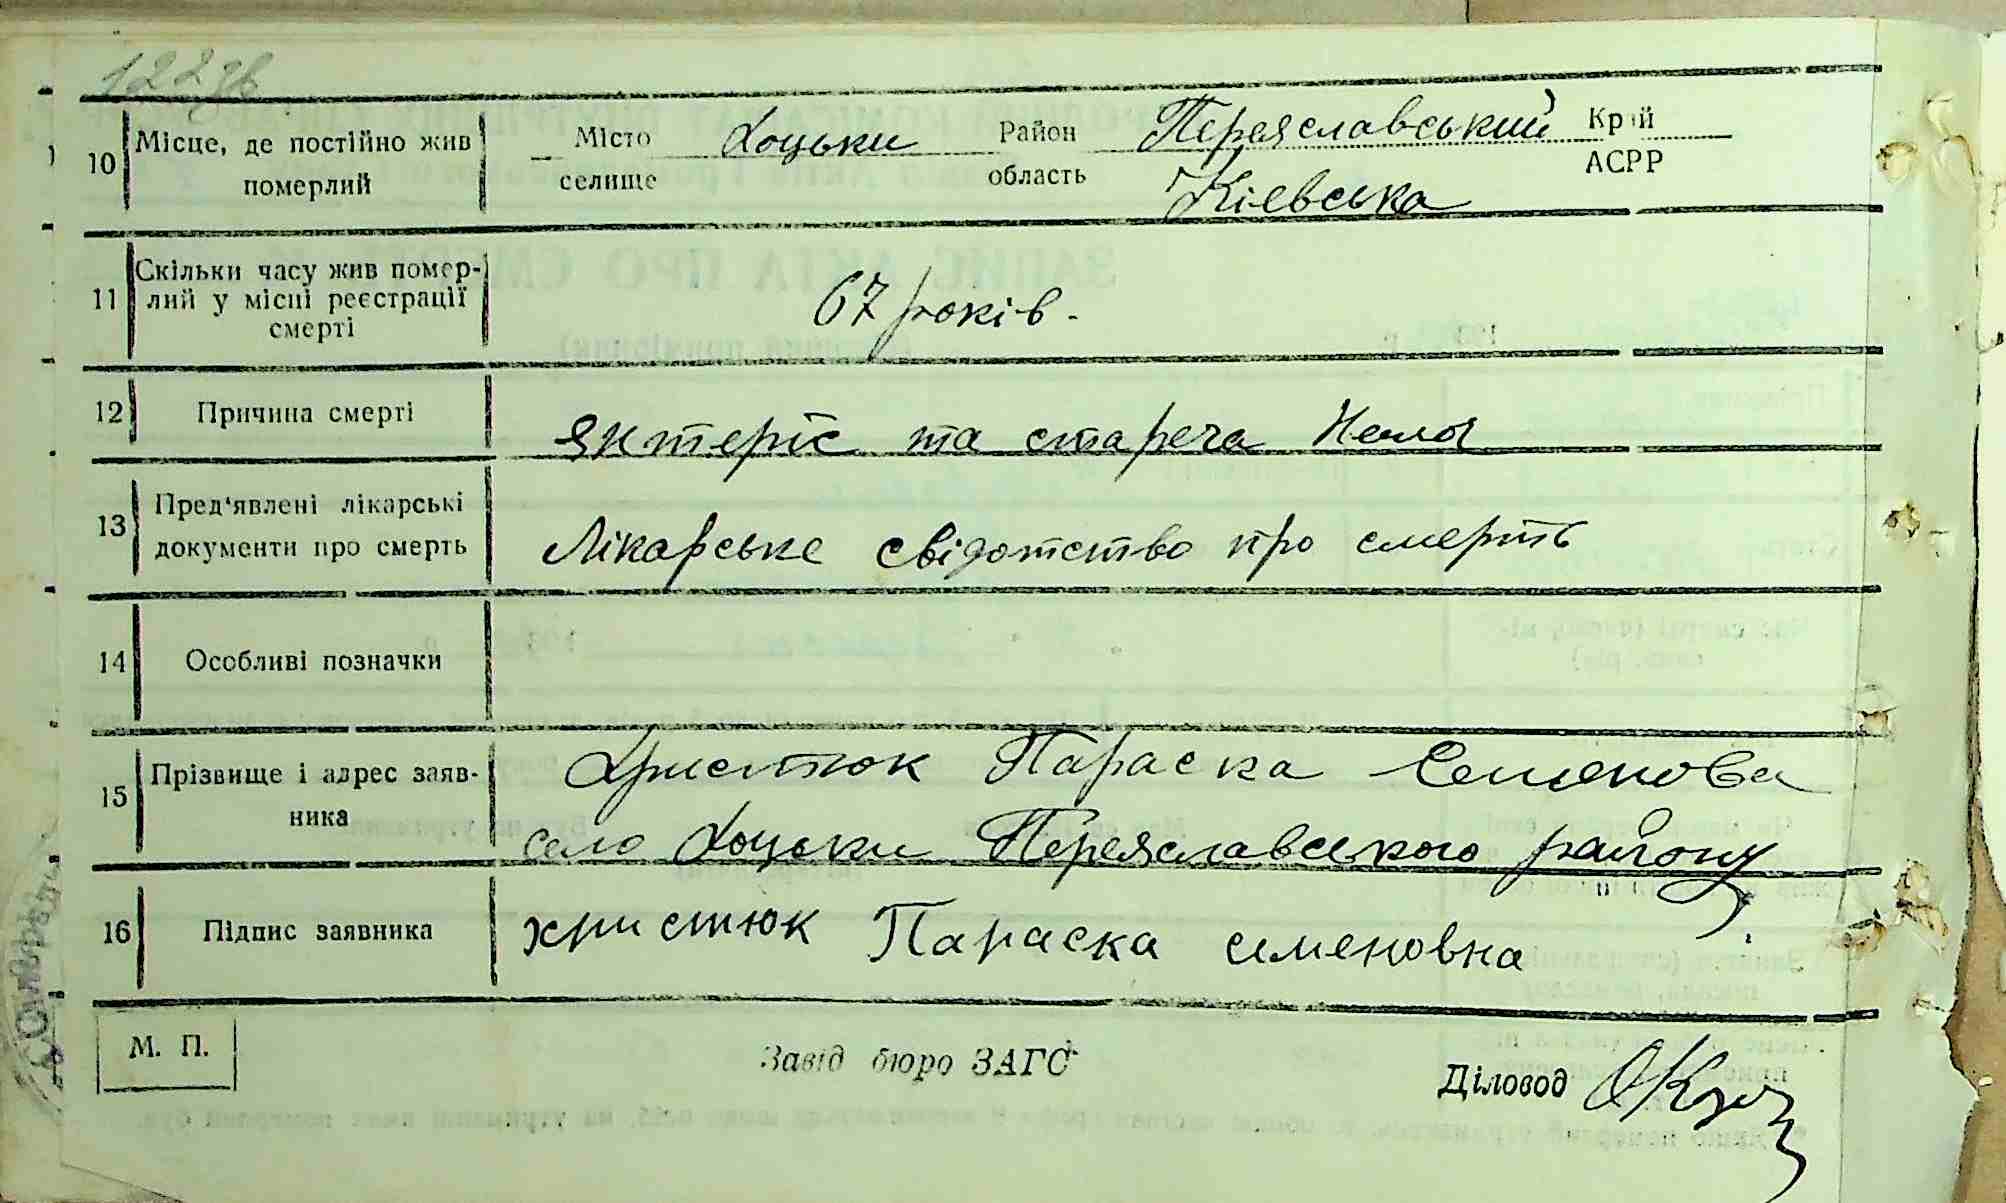 122 зв
10 Місце, де постійно жив померлий
Місто Хоцьки Район Переяславський Край
селище область Кіевська АСРР
11 Скільки часу жив померлий у місці реєстрації смерті
67 років.
12 Причина смерті
яктеріс та стареча
13 Пред'явлені лікарські документи про смерть
Лікарське свідотство про смерть
14 Особливі позначки
15 Прізвище і адрес заявника
Христюк Параска Семенова
село Хоцьки Переяславського району
16 Підпис заявника
христюк Параска семеновна
М. П.
Завід бюро ЗАГС
Діловод